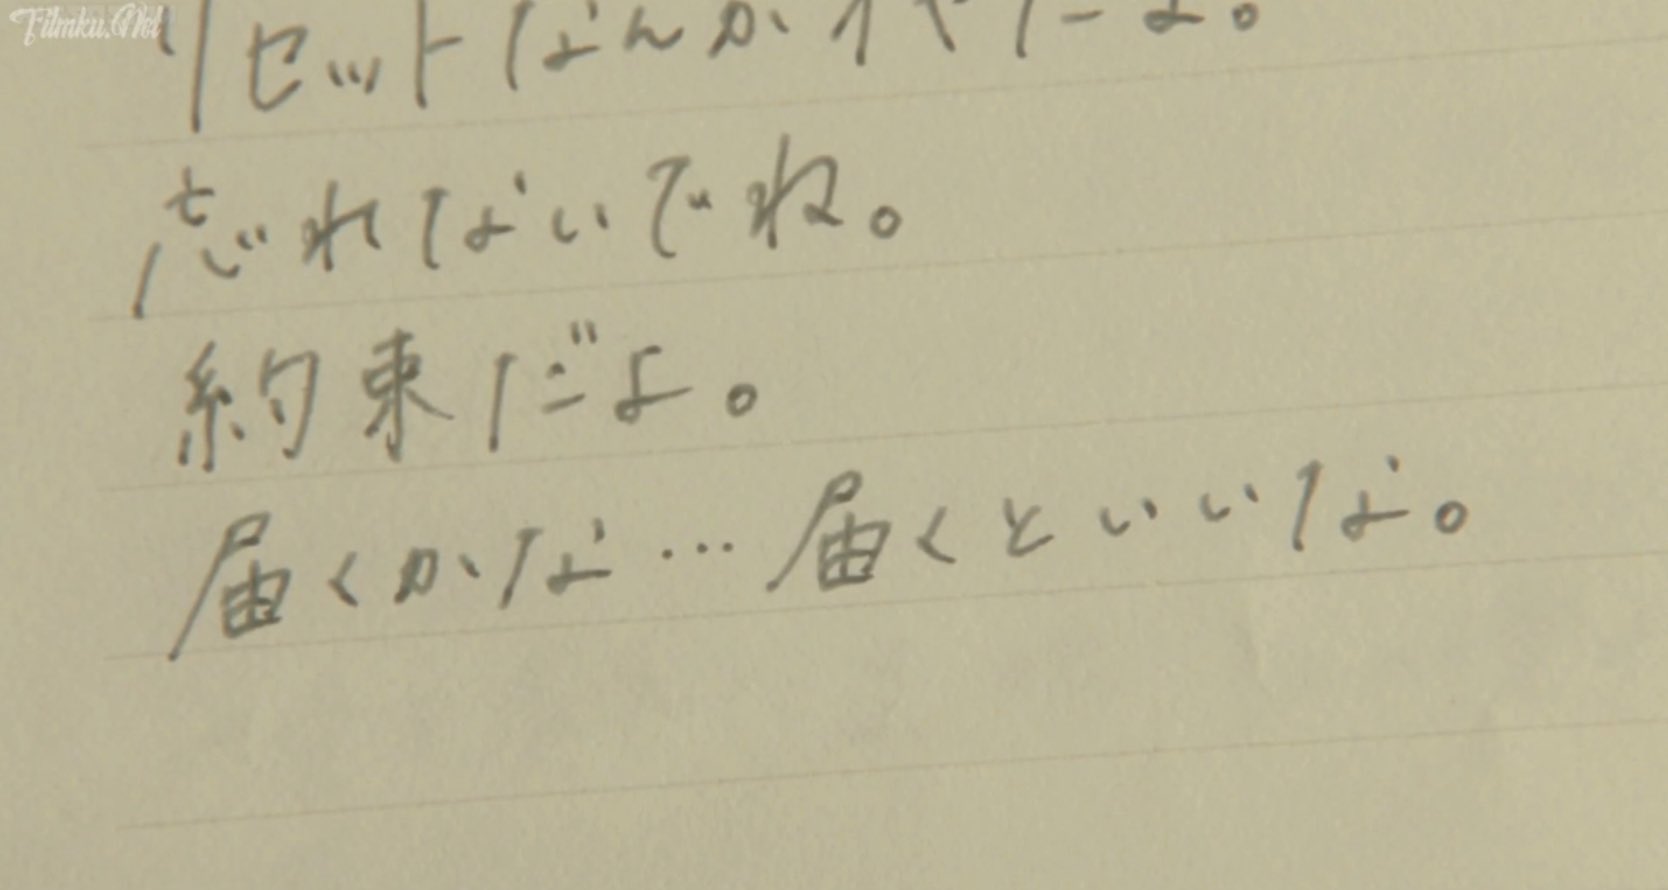 Filmku.Net
リセットなんかイヤだよ。
忘れないでね。
約束だよ。
届くかな…届くといいな。